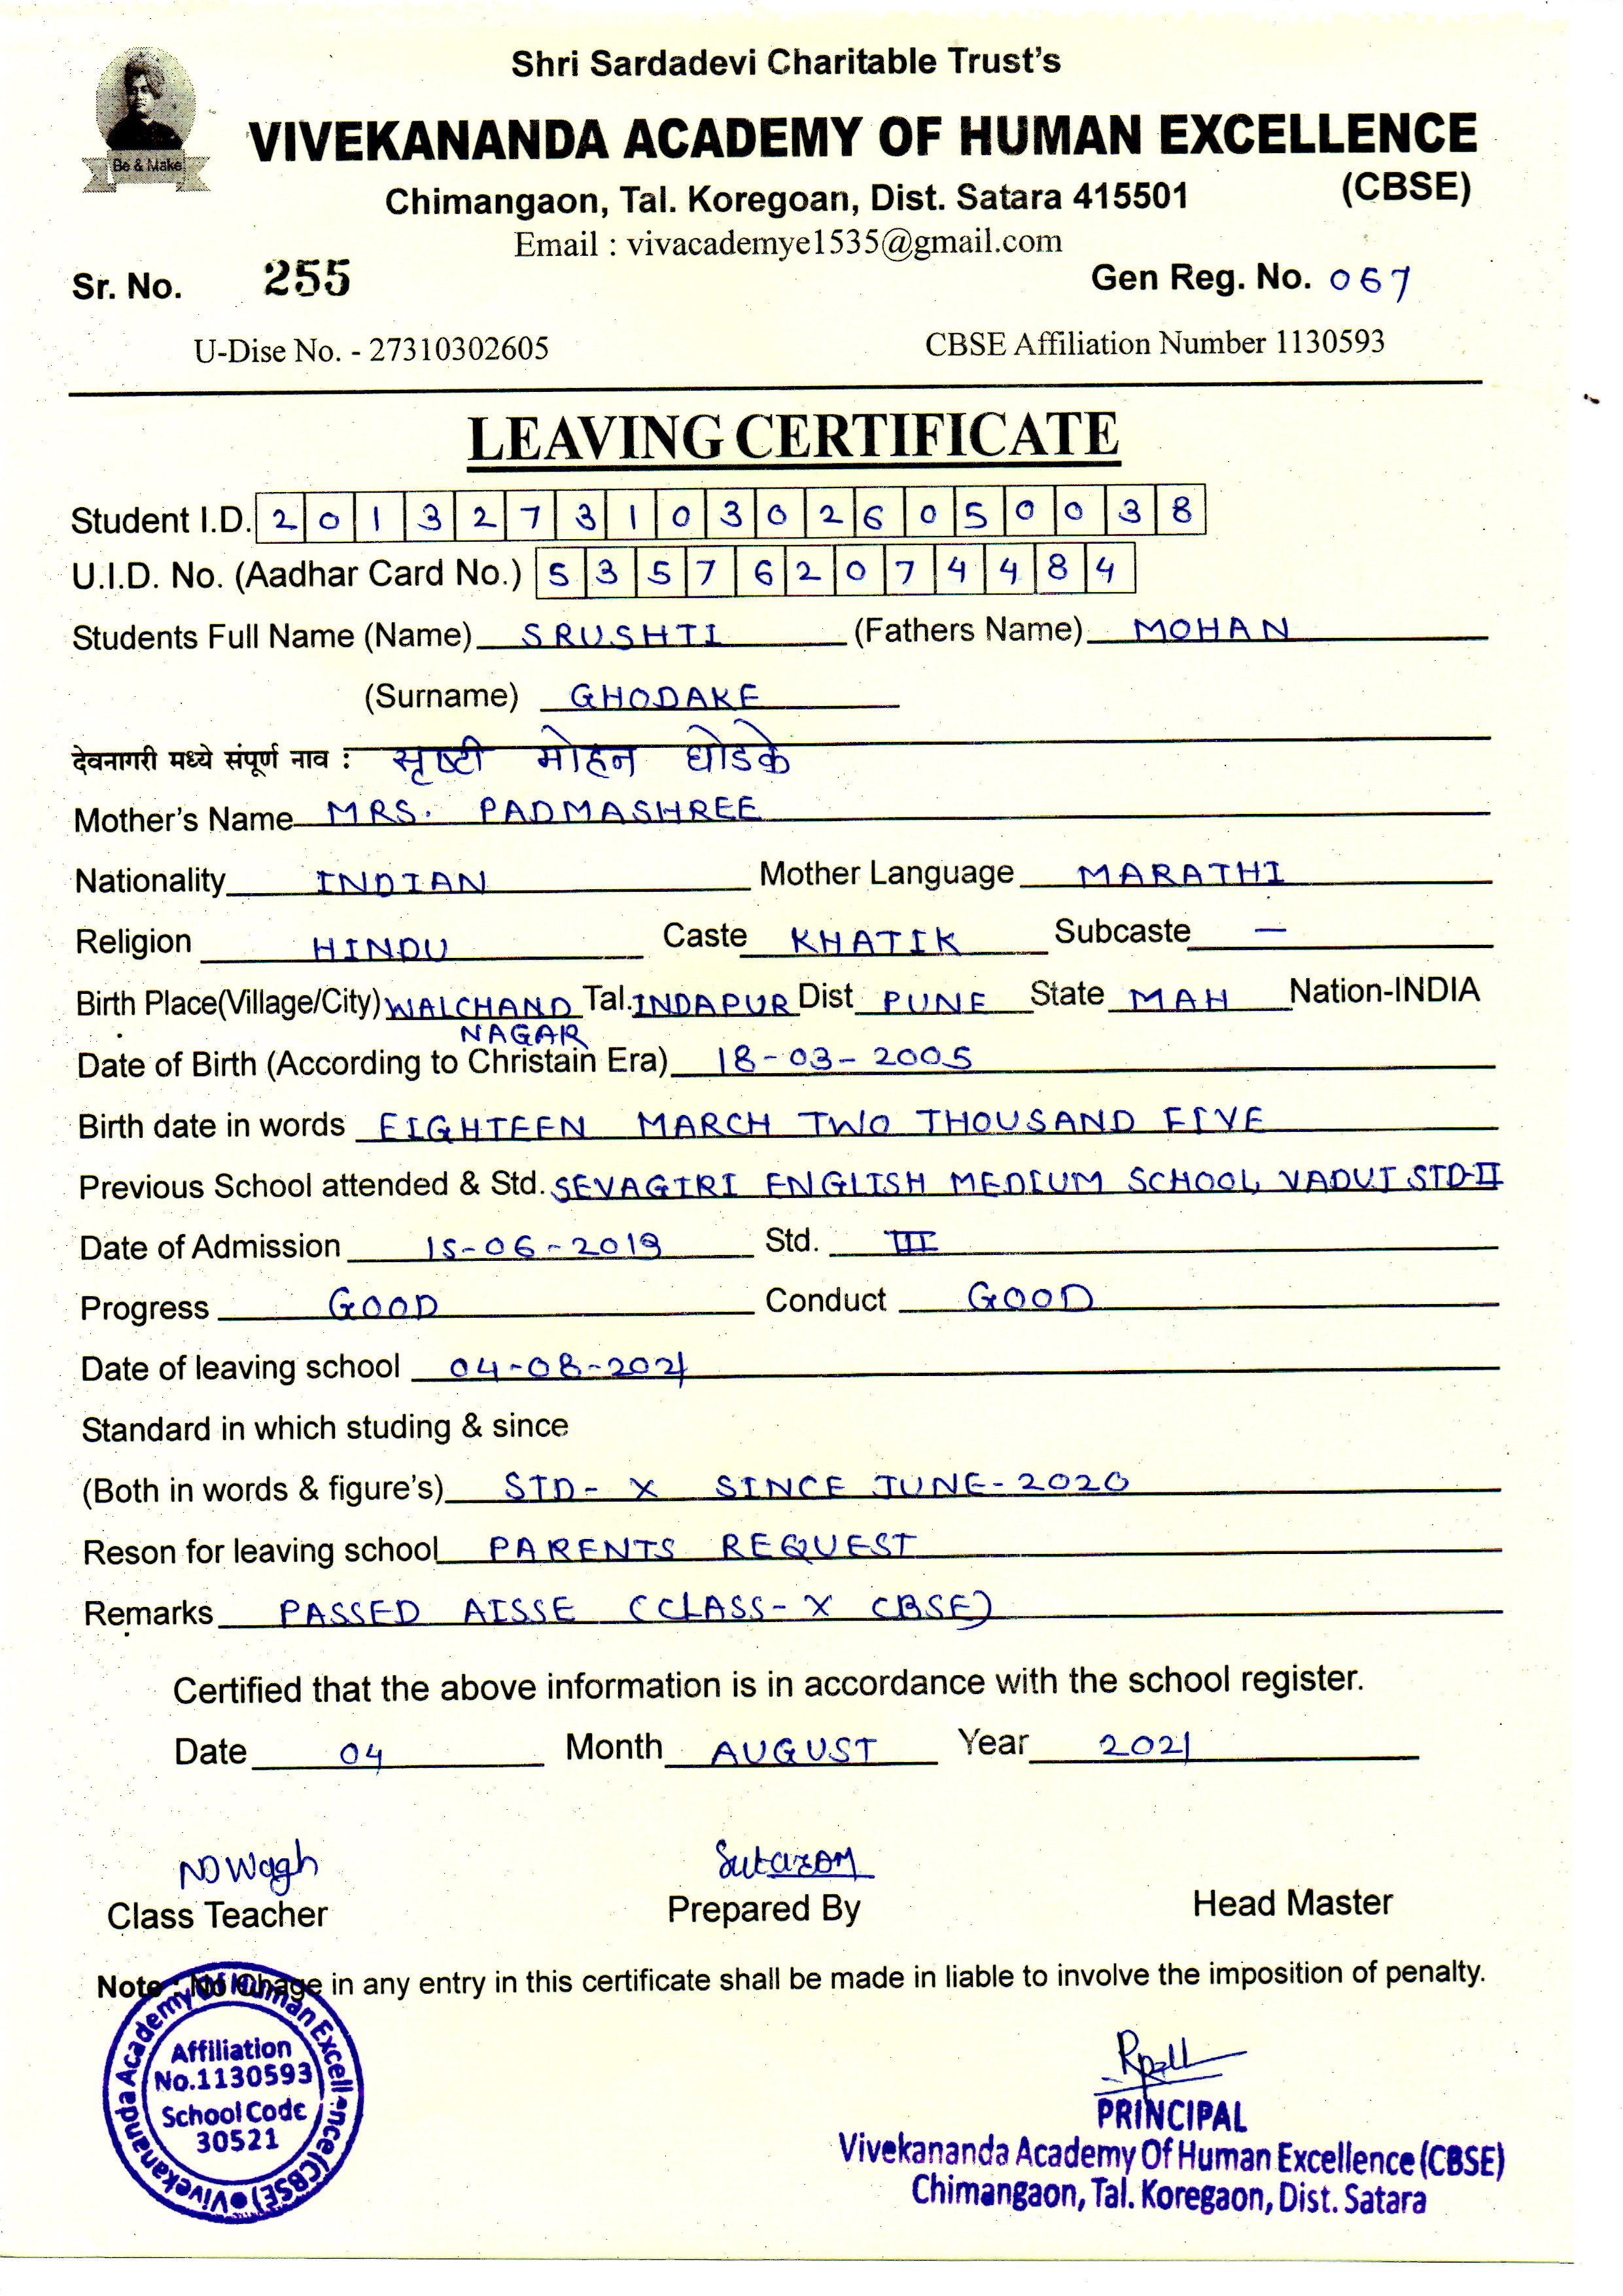 Shri Sardadevi Charitable Trust's
Be & Make
VIVEKANANDA ACADEMY OF HUMAN EXCELLENCE
(CBSE)
Chimangaon, Tal. Koregoan, Dist. Satara 415501
Email : vivacademye1535@gmail.com
Sr. No. 255 Gen Reg. No. 067
U-Dise No. - 27310302605 CBSE Affiliation Number 1130593
LEAVING CERTIFICATE
Student I.D. 2013273103026050038
U.I.D. No. (Aadhar Card No.) 535762074484
Students Full Name (Name) SRUSHTI (Fathers Name) MOHAN
(Surname) GHODAKE
देवनागरी मध्ये संपूर्ण नाव : सृष्टी मोहन घोडके
Mother's Name MRS. PADMASHREE
Nationality INDIAN Mother Language MARATHI
Religion HINDU Caste KHATIK Subcaste —
Birth Place(Village/City) WALCHAND Tal. INDAPUR Dist PUNE State MAH Nation-INDIA
NAGAR
Date of Birth (According to Christain Era) 18-03-2005
Birth date in words EIGHTEEN MARCH TWO THOUSAND FIVE
Previous School attended & Std. SEVAGIRI ENGLISH MEDIUM SCHOOL, VADUJ STD-II
Date of Admission 15-06-2019 Std. III
Progress GOOD Conduct GOOD
Date of leaving school 04-08-2021
Standard in which studing & since
(Both in words & figure's) STD- X SINCE JUNE-2020
Reson for leaving school PARENTS REQUEST
Remarks PASSED AISSE (CLASS-X CBSE)
Certified that the above information is in accordance with the school register.
Date 04 Month AUGUST Year 2021
Class Teacher Prepared By Head Master
Note : No Chage in any entry in this certificate shall be made in liable to involve the imposition of penalty.
Vivekananda Academy Of Human Excellence (CBSE)
Affiliation
No.1130593
School Code
30521
PRINCIPAL
Vivekananda Academy Of Human Excellence (CBSE)
Chimangaon, Tal. Koregaon, Dist. Satara